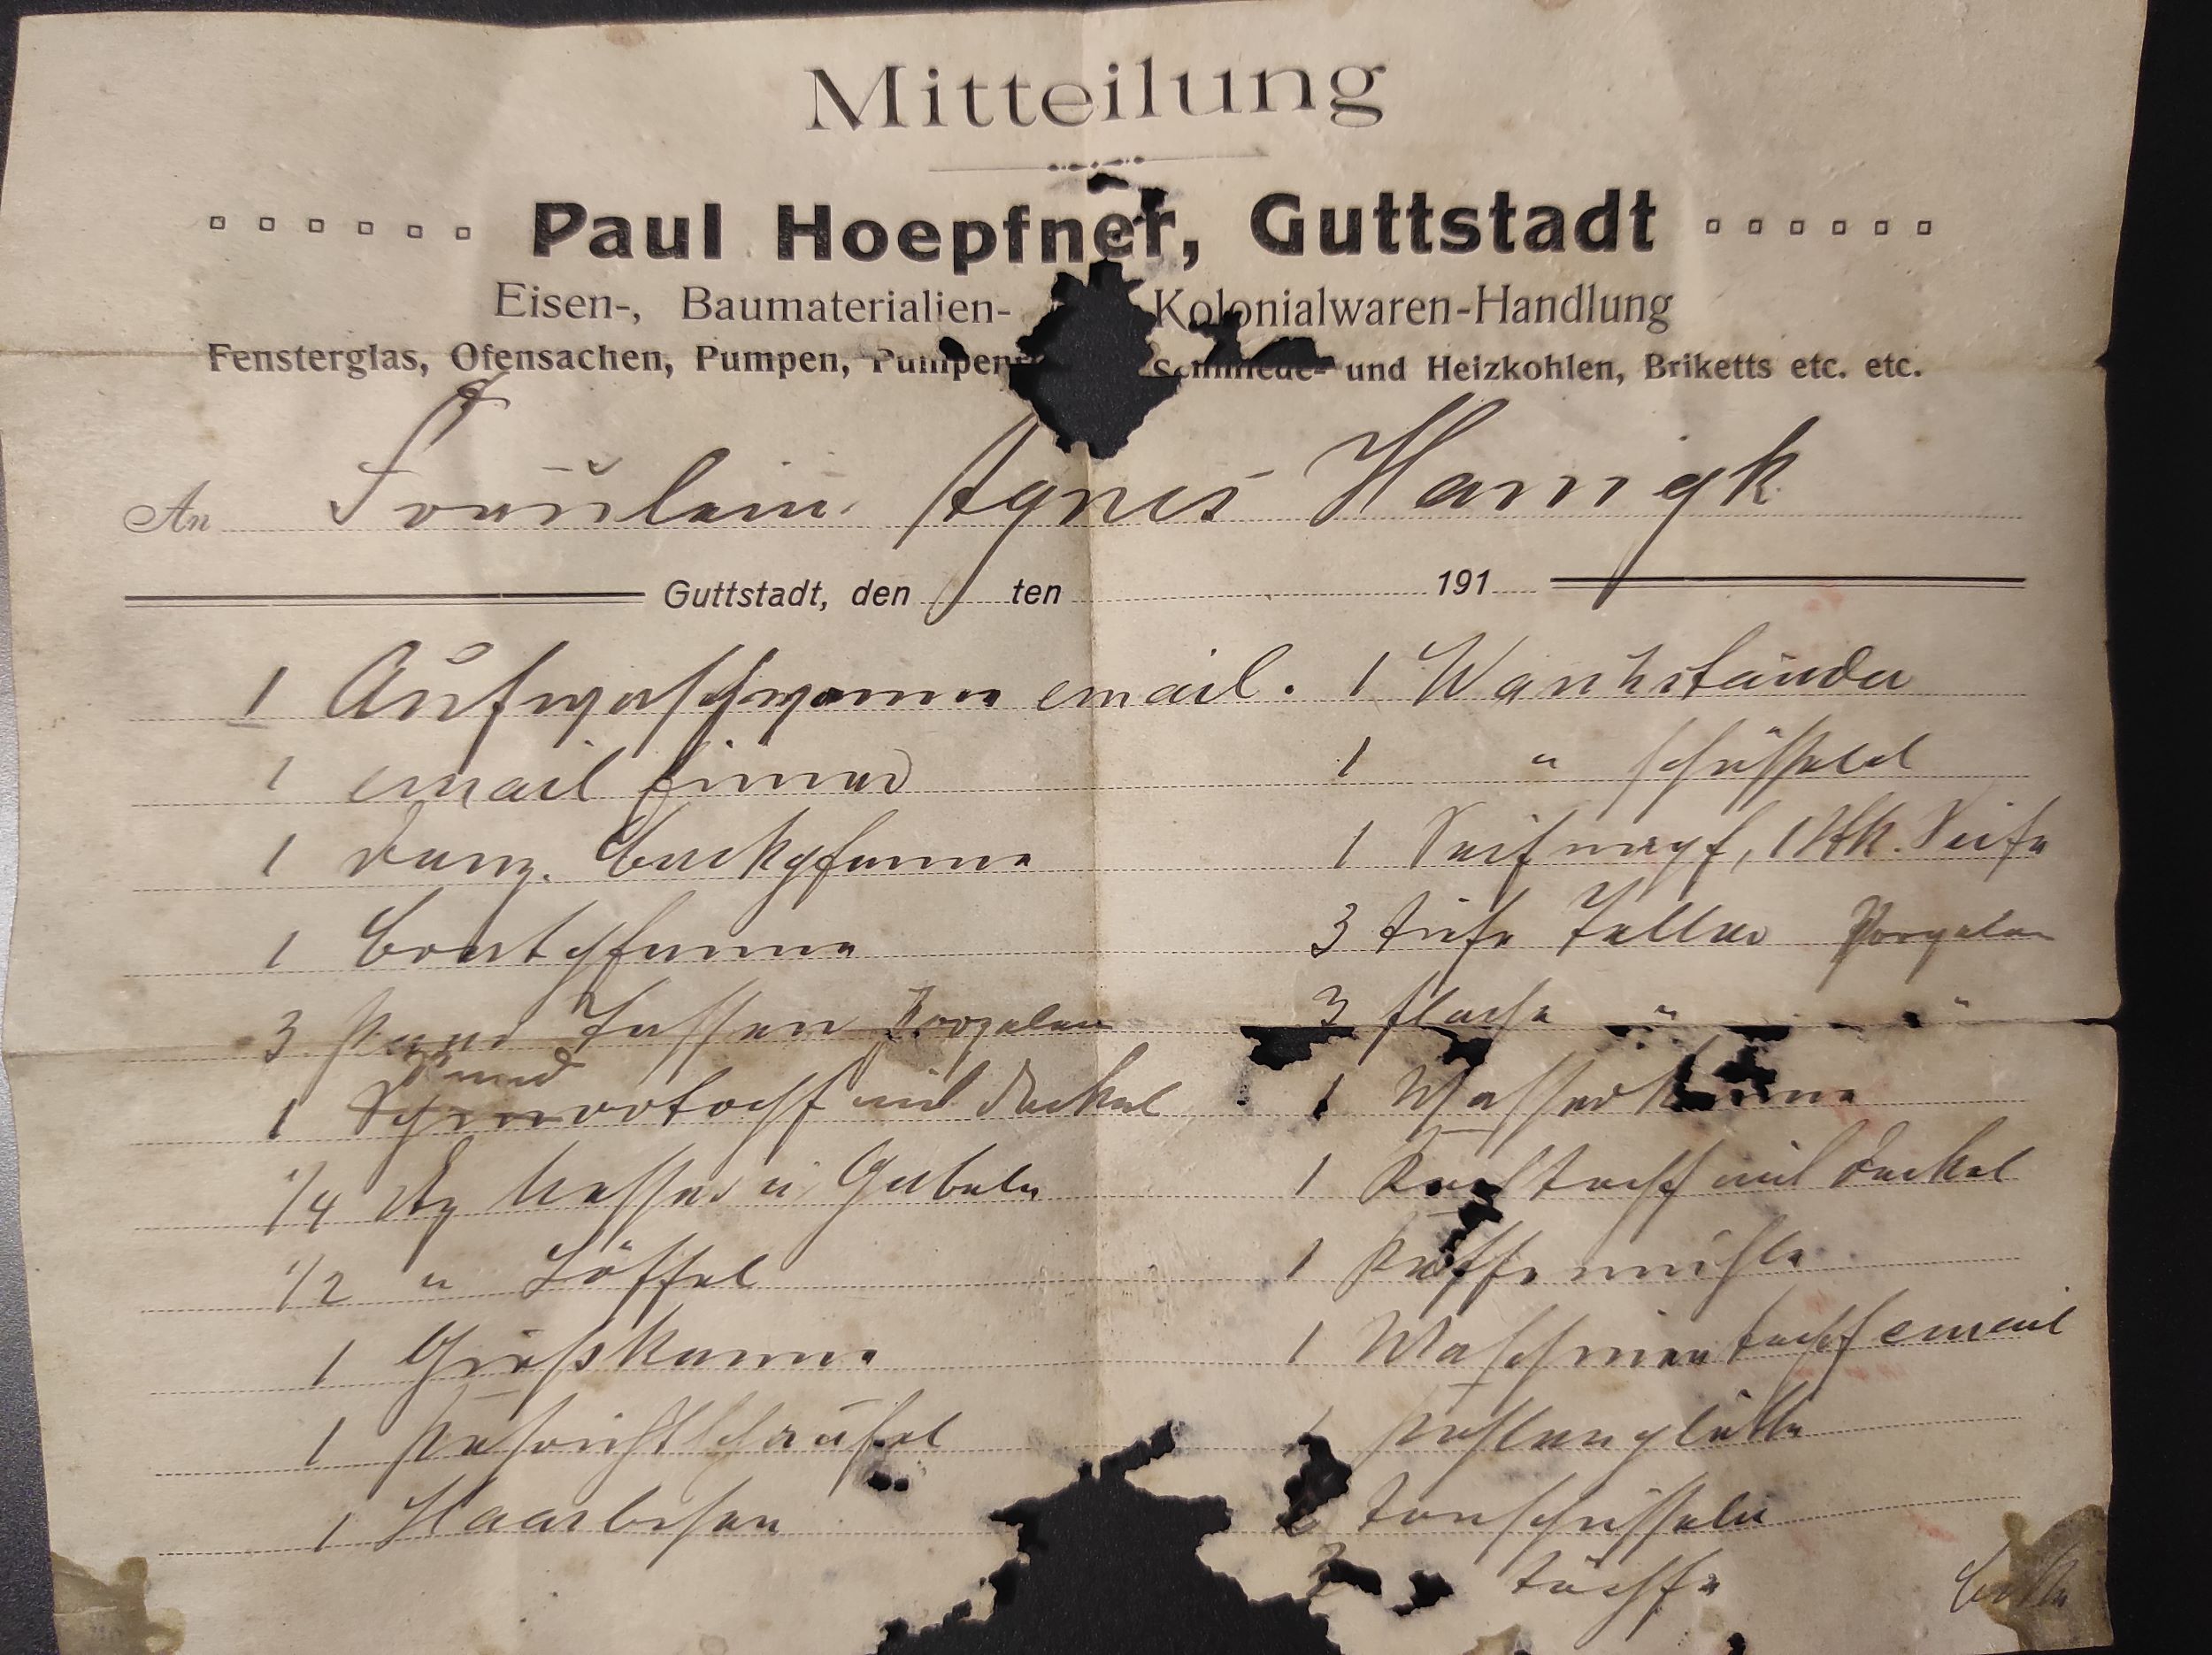 Mitteilung
Paul Hoepfner, Guttstadt
Eisen-, Baumaterialien- Kolonialwaren-Handlung
Fensterglas, Ofensachen, Pumpen, Schmiede- und Heizkohlen, Briketts etc. etc.
An Fräulein Agnes Hanigk
Guttstadt, den ten 191
1 Aufwaschwanne email.
1 email Eimer
1 Backpfanne
1 Bratpfanne
3 Paar Tassen Porzelan
rund
1 Schmortopf mit Deckel
1/4 Dz Messer u Gabeln
1/2 " Löffel
1 Gießkanne
1 Kehrichtschaufel
1 Haarbesen
1 Waschständer
1 " schüssel
1 Seifnapf, 1 Stk. Seife
3 tiefe Teller Porzelan
3 flache " "
1 Wasserkanne
1 Kochtopf mit Deckel
1 Kaffemühle
1 email
1 Kohlenplätte
2 Tonschüsseln
2 Töpfe
bitte